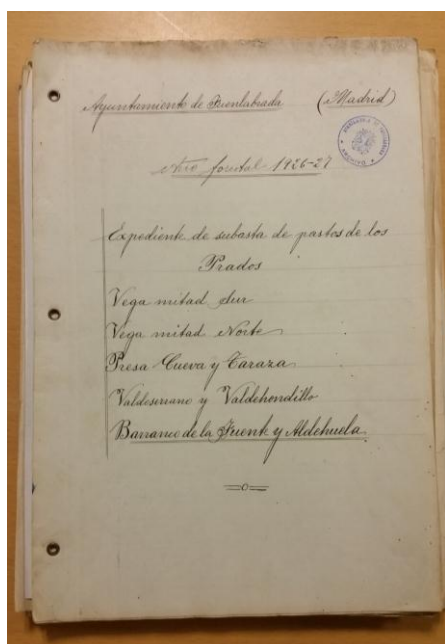 Ayuntamiento de Fuenlabrada (Madrid)
Año forestal 1926-27
Expediente de subasta de pastos de los
Prados
Vega mitad Sur
Vega mitad Norte
Presa Cueva y Taraza
Valdeserrano y Valdehondillo
Barranco de la Fuente y Aldehuela